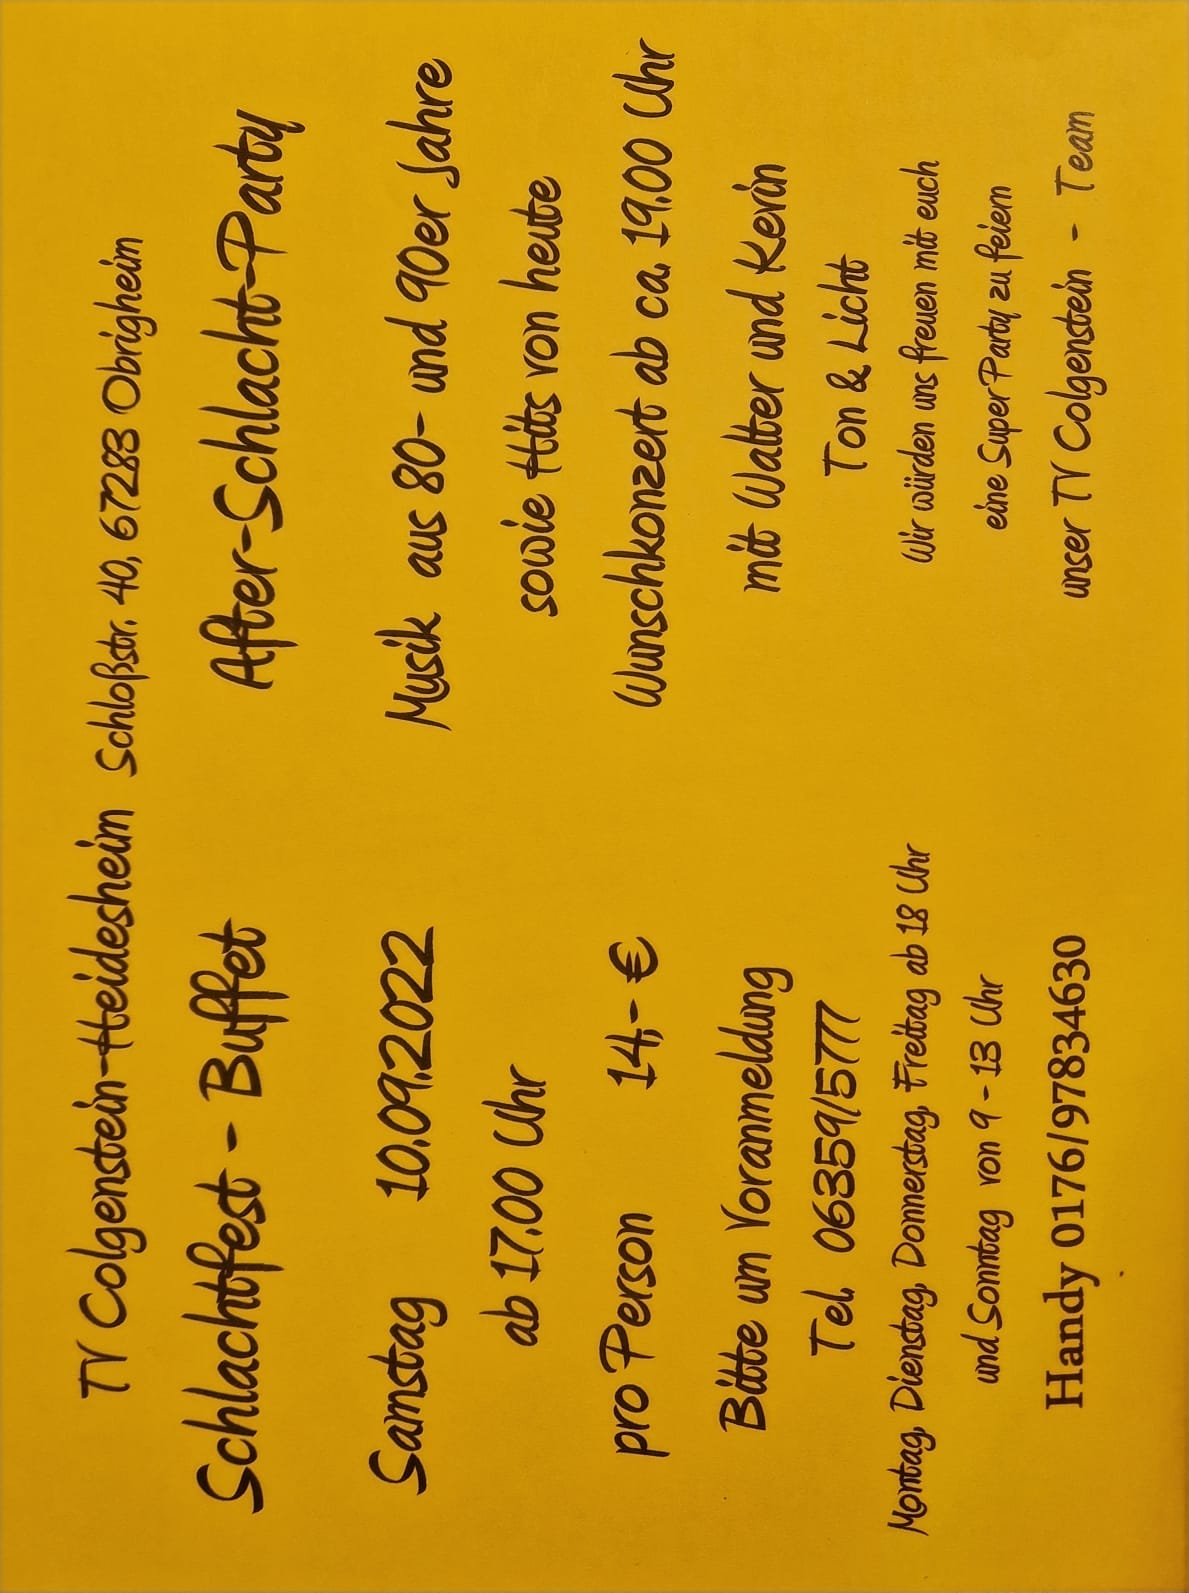 TV Colgenstein-Heidesheim Schloßstr. 40, 67283 Obrigheim
Schlachtfest - Buffet
Samstag 10.09.2022
ab 17.00 Uhr
pro Person 14,- €
Bitte um Voranmeldung
Tel. 06359/5777
Montag, Dienstag, Donnerstag, Freitag ab 18 Uhr
und Sonntag von 9 - 13 Uhr
Handy 0176/97834630
After-Schlacht-Party
Musik aus 80- und 90er Jahre
sowie Hits von heute
Wunschkonzert ab ca. 19.00 Uhr
mit Walter und Kevin
Ton & Licht
Wir würden uns freuen mit euch
eine Super Party zu feiern
unser TV Colgenstein - Team